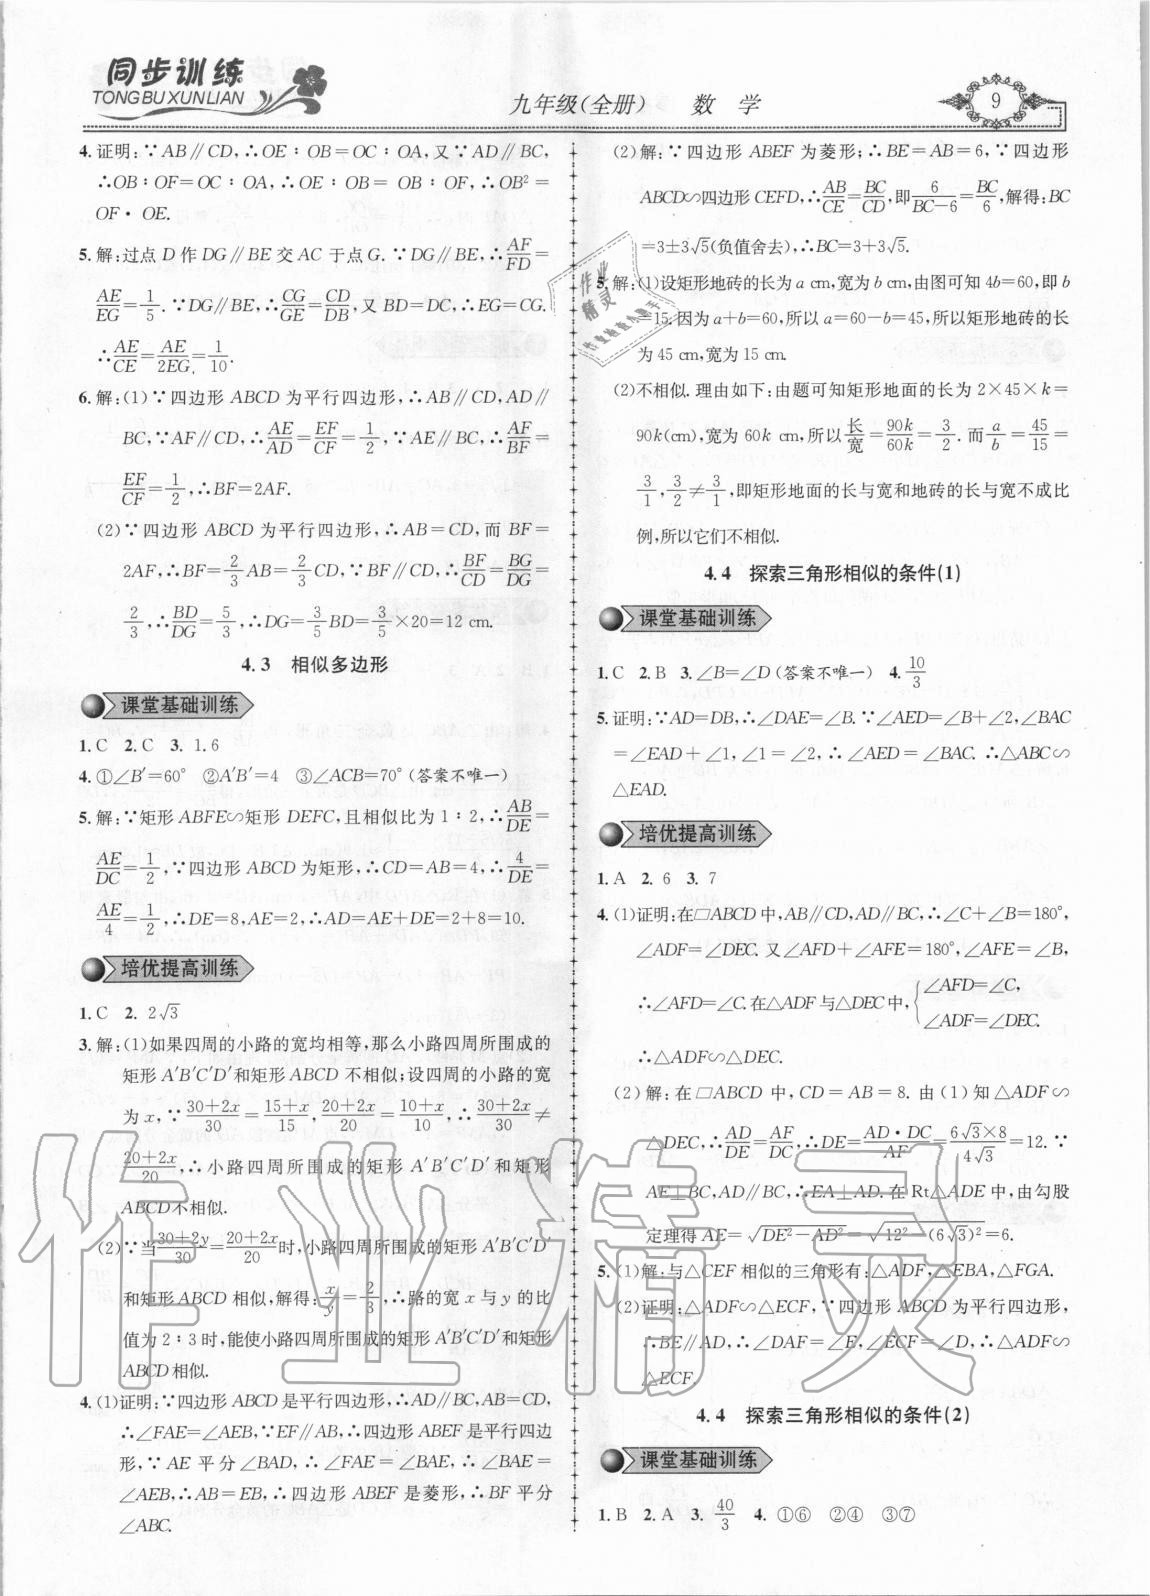 同步训练
TONGBUXUNLIAN
九年级(全册) 数 学
9
4.证明:∵AB∥CD,∴OE∶OB=OC∶OA,又∵AD∥BC,
∴OB∶OF=OC∶OA,∴OE∶OB=OB∶OF,∴OB²=
OF·OE.
5.解:过点D作DG∥BE交AC于点G.∵DG∥BE,∴AF/FD=
AE/EG=1/5.∵DG∥BE,∴CG/GE=CD/DB,又BD=DC,∴EG=CG.
∴AE/CE=AE/2EG=1/10.
6.解:(1)∵四边形ABCD为平行四边形,∴AB∥CD,AD∥
BC,∵AF∥CD,∴AE/AD=EF/CF=1/2,∵AE∥BC,∴AF/BF=
EF/CF=1/2,∴BF=2AF.
(2)∵四边形ABCD为平行四边形,∴AB=CD,而BF=
2AF,∴BF=2/3AB=2/3CD,∵BF∥CD,∴BF/CD=BG/DG=
2/3,∴BD/DG=5/3,∴DG=3/5BD=3/5×20=12 cm.
4.3 相似多边形
课堂基础训练
1.C 2.C 3.1.6
4.①∠B′=60° ②A′B′=4 ③∠ACB=70°(答案不唯一)
5.解:∵矩形ABFE∽矩形DEFC,且相似比为1∶2,∴AB/DE=
AE/DC=1/2,∵四边形ABCD为矩形,∴CD=AB=4,∴4/DE=
AE/4=1/2,∴DE=8,AE=2,∴AD=AE+DE=2+8=10.
培优提高训练
1.C 2.2√3
3.解:(1)如果四周的小路的宽均相等,那么小路四周所围成的
矩形A′B′C′D′和矩形ABCD不相似;设四周的小路的宽
为x,∵(30+2x)/30=(15+x)/15,(20+2x)/20=(10+x)/10,∴(30+2x)/30≠
(20+2x)/20,∴小路四周所围成的矩形A′B′C′D′和矩形
ABCD不相似.
(2)∵当(30+2y)/30=(20+2x)/20时,小路四周所围成的矩形A′B′C′D′
和矩形ABCD相似,解得:x/y=2/3,∴路的宽x与y的比
值为2∶3时,能使小路四周所围成的矩形A′B′C′D′和矩形
ABCD相似.
4.(1)证明:∵四边形ABCD是平行四边形,∴AD∥BC,AB=CD,
∴∠FAE=∠AEB,∵EF∥AB,∴四边形ABEF是平行四边
形,∵AE平分∠BAD,∴∠FAE=∠BAE,∴∠BAE=
∠AEB,∴AB=EB,∴四边形ABEF是菱形,∴BF平分
∠ABC.
(2)解:∵四边形ABEF为菱形;∴BE=AB=6,∵四边形
ABCD∽四边形CEFD,∴AB/CE=BC/CD,即6/(BC-6)=BC/6,解得:BC
=3±3√5(负值舍去),∴BC=3+3√5.
5.解:(1)设矩形地砖的长为a cm,宽为b cm,由图可知4b=60,即b
=15.因为a+b=60,所以a=60-b=45,所以矩形地砖的长
为45 cm,宽为15 cm.
(2)不相似.理由如下:由题可知矩形地面的长为2×45×k=
90k(cm),宽为60k cm,所以长/宽=90k/60k=3/2.而a/b=45/15=
3/1,3/2≠3/1,即矩形地面的长与宽和地砖的长与宽不成比
例,所以它们不相似.
4.4 探索三角形相似的条件(1)
课堂基础训练
1.C 2.B 3.∠B=∠D(答案不唯一) 4.10/3
5.证明:∵AD=DB,∴∠DAE=∠B.∵∠AED=∠B+∠2,∠BAC
=∠EAD+∠1,∠1=∠2,∴∠AED=∠BAC.∴△ABC∽
△EAD.
培优提高训练
1.A 2.6 3.7
4.(1)证明:在□ABCD中,AB∥CD,AD∥BC,∴∠C+∠B=180°,
∠ADF=∠DEC.又∠AFD+∠AFE=180°,∠AFE=∠B,
∴∠AFD=∠C.在△ADF与△DEC中,{∠AFD=∠C,
∠ADF=∠DEC.
∴△ADF∽△DEC.
(2)解:在□ABCD中,CD=AB=8.由(1)知△ADF∽
△DEC,∴AD/DE=AF/DC,∴DE=AD·DC/AF=6√3×8/4√3=12.∵
AE⊥BC,AD∥BC,∴EA⊥AD.在Rt△ADE中,由勾股
定理得AE=√(DE²-AD²)=√(12²-(6√3)²)=6.
5.(1)解:与△CEF相似的三角形有:△ADF,△EBA,△FGA.
(2)证明:△ADF∽△ECF,∵四边形ABCD为平行四边形,
∴BE∥AD,∴∠DAF=∠E,∠ECF=∠D,∴△ADF∽
△ECF.
4.4 探索三角形相似的条件(2)
课堂基础训练
1.B 2.A 3.40/3 4.①⑥ ②④ ③⑦
作业精灵